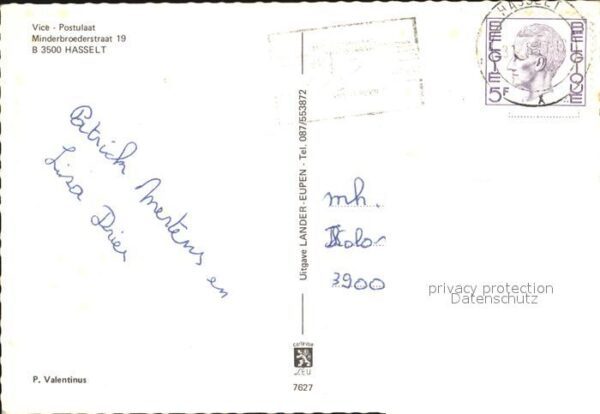 Vice - Postulaat
Minderbroederstraat 19
B 3500 HASSELT
HASSELT
X
BELGIE
BELGIQUE
5F
Patrick Mertens en
Lisa Dries
Uitgave LANDER-EUPEN - Tel. 087/553872
mh.
Kolo
3900
privacy protection
Datenschutz
P. Valentinus
LEU
7627